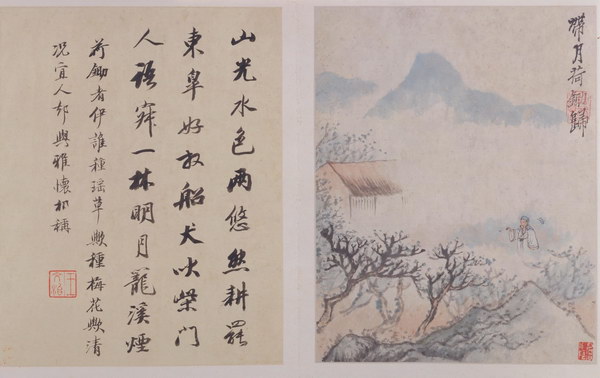 帶月荷鋤歸
山光水色兩悠然耕罷
東皋好放船犬吠柴門
人語寂一林明月籠溪煙
荷鋤者伊誰種瑤草歟種梅花歟清
况宜人却與雅懷相稱